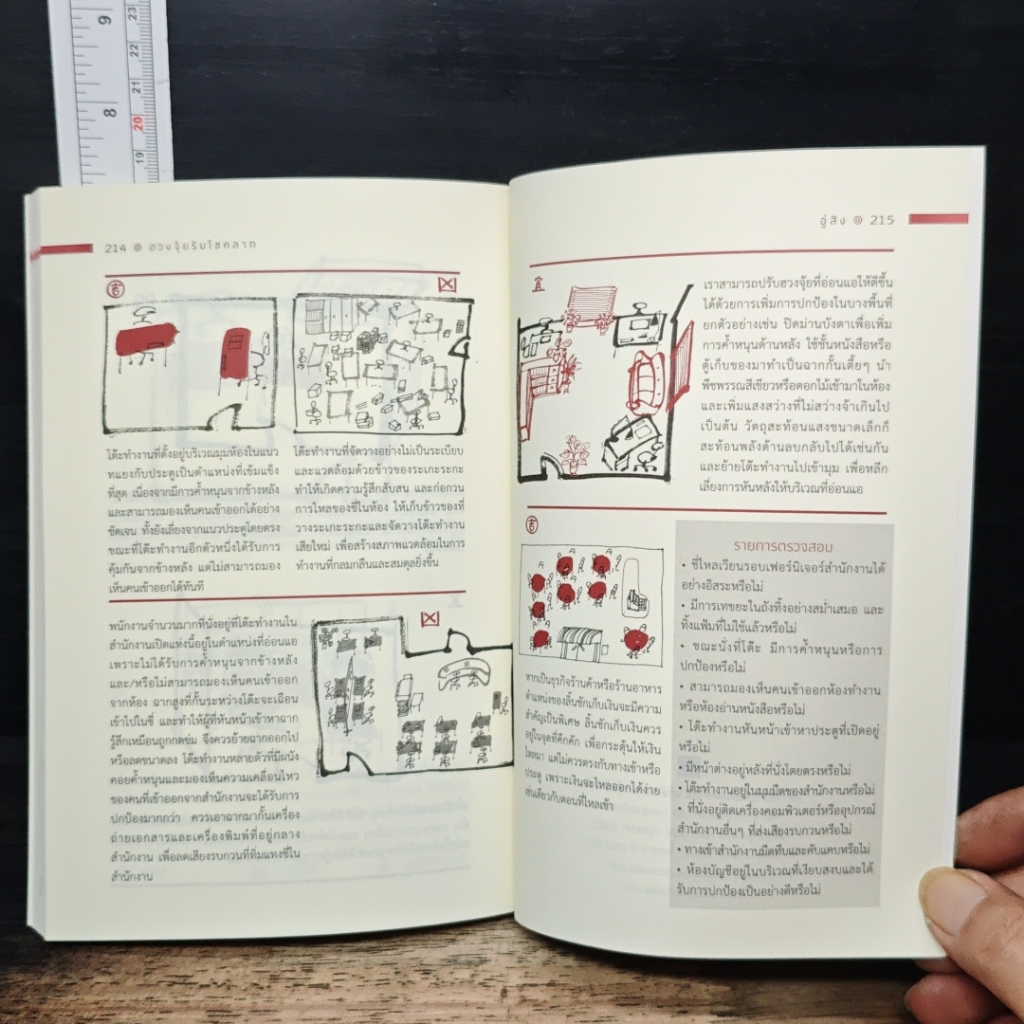 9
8
23
22
21
20
19
214 ๏ ฮวงจุ้ยรับโชคลาภ
吉
โต๊ะทำงานที่ตั้งอยู่บริเวณมุมห้องในแนว
ทแยงกับประตูเป็นตำแหน่งที่เข้มแข็ง
ที่สุด เนื่องจากมีการค้ำหนุนจากข้างหลัง
และสามารถมองเห็นคนเข้าออกได้อย่าง
ชัดเจน ทั้งยังเลี่ยงจากแนวประตูโดยตรง
ขณะที่โต๊ะทำงานอีกตัวหนึ่งได้รับการ
คุ้มกันจากข้างหลัง แต่ไม่สามารถมอง
เห็นคนเข้าออกได้ทันที
โต๊ะทำงานที่จัดวางอย่างไม่เป็นระเบียบ
และแวดล้อมด้วยข้าวของระเกะระกะ
ทำให้เกิดความรู้สึกสับสน และก่อกวน
การไหลของชี่ในห้อง ให้เก็บข้าวของที่
วางระเกะระกะและจัดวางโต๊ะทำงาน
เสียใหม่ เพื่อสร้างสภาพแวดล้อมในการ
ทำงานที่กลมกลืนและสมดุลยิ่งขึ้น
พนักงานจำนวนมากที่นั่งอยู่ที่โต๊ะทำงานใน
สำนักงานเปิดแห่งนี้อยู่ในตำแหน่งที่อ่อนแอ
เพราะไม่ได้รับการค้ำหนุนจากข้างหลัง
และ/หรือไม่สามารถมองเห็นคนเข้าออก
จากห้อง ฉากสูงที่กั้นระหว่างโต๊ะจะเฉือน
เข้าไปในชี่ และทำให้ผู้ที่หันหน้าเข้าหาฉาก
รู้สึกเหมือนถูกกดข่ม จึงควรย้ายฉากออกไป
หรือลดขนาดลง โต๊ะทำงานหลายตัวที่มีผนัง
คอยค้ำหนุนและมองเห็นความเคลื่อนไหว
ของคนที่เข้าออกจากสำนักงานจะได้รับการ
ปกป้องมากกว่า ควรเอาฉากมากั้นเครื่อง
ถ่ายเอกสารและเครื่องพิมพ์ที่อยู่กลาง
สำนักงาน เพื่อลดเสียงรบกวนที่ทิ่มแทงชี่ใน
สำนักงาน
อู่สิง ๏ 215
宜
เราสามารถปรับฮวงจุ้ยที่อ่อนแอให้ดีขึ้น
ได้ด้วยการเพิ่มการปกป้องในบางพื้นที่
ยกตัวอย่างเช่น ปิดม่านบังตาเพื่อเพิ่ม
การค้ำหนุนด้านหลัง ใช้ชั้นหนังสือหรือ
ตู้เก็บของมาทำเป็นฉากกั้นเตี้ยๆ นำ
พืชพรรณสีเขียวหรือดอกไม้เข้ามาในห้อง
และเพิ่มแสงสว่างที่ไม่สว่างจ้าเกินไป
เป็นต้น วัตถุสะท้อนแสงขนาดเล็กก็
สะท้อนพลังด้านลบกลับไปได้เช่นกัน
และย้ายโต๊ะทำงานไปเข้ามุม เพื่อหลีก
เลี่ยงการหันหลังให้บริเวณที่อ่อนแอ
吉
หากเป็นธุรกิจร้านค้าหรือร้านอาหาร
ตำแหน่งของลิ้นชักเก็บเงินจะมีความ
สำคัญเป็นพิเศษ ลิ้นชักเก็บเงินควร
อยู่ในจุดที่คึกคัก เพื่อกระตุ้นให้เงิน
ไหลมา แต่ไม่ควรตรงกับทางเข้าหรือ
ประตู เพราะเงินจะไหลออกได้ง่าย
เช่นเดียวกับตอนที่ไหลเข้า
รายการตรวจสอบ
• ชี่ไหลเวียนรอบเฟอร์นิเจอร์สำนักงานได้
อย่างอิสระหรือไม่
• มีการเทขยะในถังทิ้งอย่างสม่ำเสมอ และ
ทิ้งแฟ้มที่ไม่ใช้แล้วหรือไม่
• ขณะนั่งที่โต๊ะ มีการค้ำหนุนหรือการ
ปกป้องหรือไม่
• สามารถมองเห็นคนเข้าออกห้องทำงาน
หรือห้องอ่านหนังสือหรือไม่
• โต๊ะทำงานหันหน้าเข้าหาประตูที่เปิดอยู่
หรือไม่
• มีหน้าต่างอยู่หลังที่นั่งโดยตรงหรือไม่
• โต๊ะทำงานอยู่ในมุมมืดของสำนักงานหรือไม่
• ที่นั่งอยู่ติดเครื่องคอมพิวเตอร์หรืออุปกรณ์
สำนักงานอื่นๆ ที่ส่งเสียงรบกวนหรือไม่
• ทางเข้าสำนักงานมืดทึบและคับแคบหรือไม่
• ห้องบัญชีอยู่ในบริเวณที่เงียบสงบและได้
รับการปกป้องเป็นอย่างดีหรือไม่